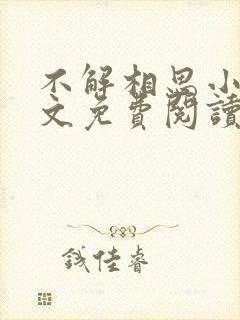 不解相思小
文免費閱讀
錢佳睿